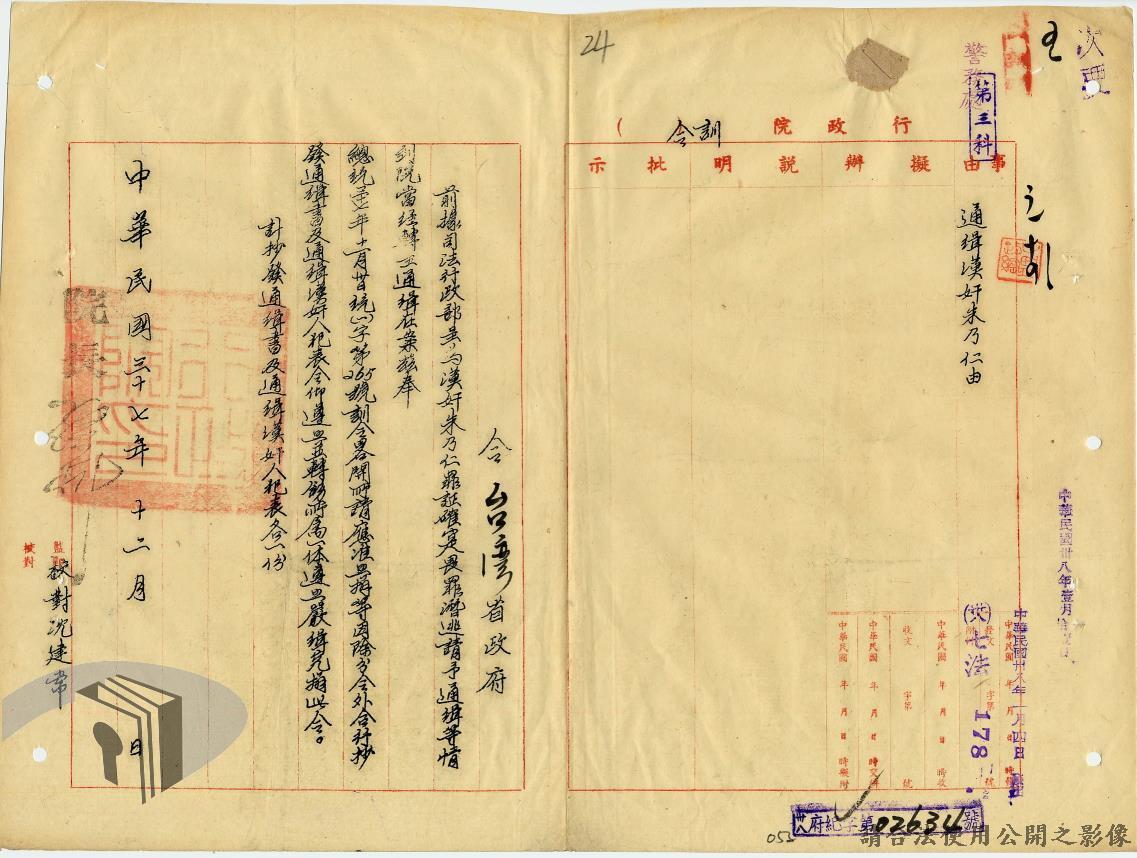 24
次
警務處
第三科
行政院
訓令
事由擬辦說明批示
通緝漢奸朱乃仁由
令台灣省政府
前據司法行政部呈為漢奸朱乃仁罪証確定畏罪潛逃請予通緝等情
到院當經轉呈通緝在案茲奉
總統三十七年十一月廿日統(一)字第265號訓令畧開所請應准照辦等因除分令外合行抄
發通緝書及通緝漢奸人犯表令仰遵照並轉飭所屬一体遵照嚴緝究辦此令。
計抄發通緝書及通緝漢奸人犯表各一份
院長
中華民國三十七年十二月 日
監印
校對
校對沈建常
中華民國卅八年壹月
中華民國卅八年一月四日
七法
178
中華民國 年 月 日
收文 字第 號
中華民國 年 月 日
中華民國 年 月 日
府紀字第02634號
請合法使用公開之影像